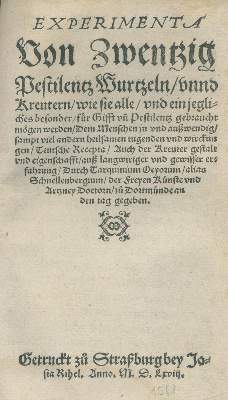 EXPERIMENTA
Von Zwentzig
Pestilentz Wurtzeln / vnnd
Kreutern / wie sie alle / vnd ein jegli-
ches besonder / für Gifft vñ Pestilentz gebraucht
mögen werden / Dem Menschen in vnd außwendig /
sampt viel andern heilsamen tugenden vnd wirckun
gen / Teutsche Recepte / Auch der Kreuter gestalt
vnd eigenschafft / auß langwiriger vnd gewisser er-
fahrung / Durch Tarquinium Ocyorum / alias
Schnellenbergium / der Freyen Künste vnd
Artzney Doctorn / zů Dortmünde an
den tag gegeben.
Getruckt zů Straßburg bey Jo-
sia Rihel. Anno, M. D. Lxviij.